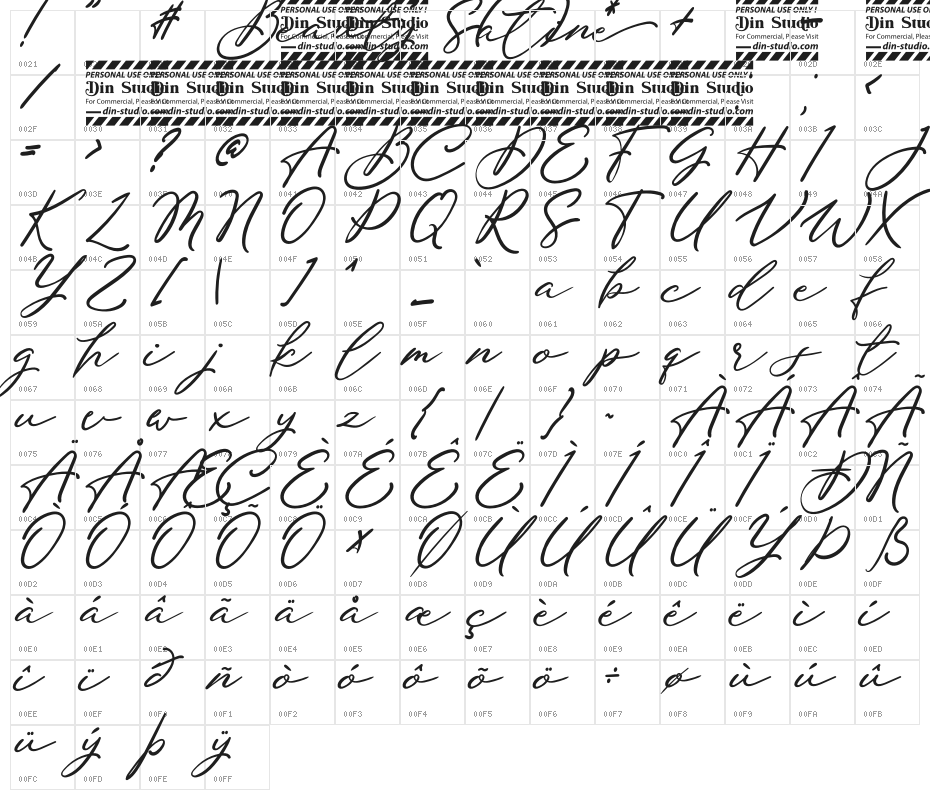 ! " # Beauty Satine * +
PERSONAL USE ONLY !
Din Studio
For Commercial, Please Visit
din-studio.com
0021 002D 002E
/ ; <
PERSONAL USE ONLY !
Din Studio
For Commercial, Please Visit
din-studio.com
002F 0030 0031 0032 0033 0034 0035 0036 0037 0038 0039 003A 003B 003C
= > ? @ A B C D E F G H I J
003D 003E 003F 0040 0041 0042 0043 0044 0045 0046 0047 0048 0049 004A
K L M N O P Q R S T U V W X
004B 004C 004D 004E 004F 0050 0051 0052 0053 0054 0055 0056 0057 0058
Y Z [ \ ] ^ _ ` a b c d e f
0059 005A 005B 005C 005D 005E 005F 0060 0061 0062 0063 0064 0065 0066
g h i j k l m n o p q r s t
0067 0068 0069 006A 006B 006C 006D 006E 006F 0070 0071 0072 0073 0074
u v w x y z { | } ~ À Á Â Ã
0075 0076 0077 0078 0079 007A 007B 007C 007D 007E 00C0 00C1 00C2 00C3
Ä Å Æ Ç È É Ê Ë Ì Í Î Ï Ð Ñ
00C4 00C5 00C6 00C7 00C8 00C9 00CA 00CB 00CC 00CD 00CE 00CF 00D0 00D1
Ò Ó Ô Õ Ö × Ø Ù Ú Û Ü Ý Þ ß
00D2 00D3 00D4 00D5 00D6 00D7 00D8 00D9 00DA 00DB 00DC 00DD 00DE 00DF
à á â ã ä å æ ç è é ê ë ì í
00E0 00E1 00E2 00E3 00E4 00E5 00E6 00E7 00E8 00E9 00EA 00EB 00EC 00ED
î ï ð ñ ò ó ô õ ö ÷ ø ù ú û
00EE 00EF 00F0 00F1 00F2 00F3 00F4 00F5 00F6 00F7 00F8 00F9 00FA 00FB
ü ý þ ÿ
00FC 00FD 00FE 00FF